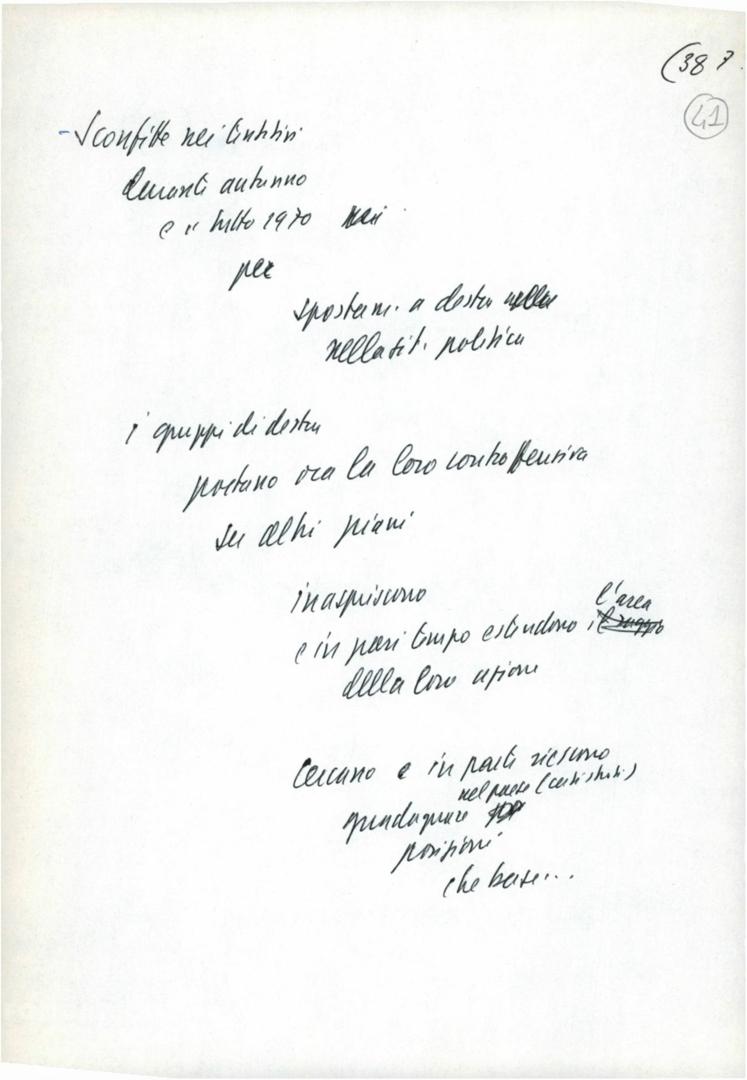 (38 7.
41
- Sconfitte nei tentativi
durante autunno
e in tutto 1970
per
spostam. a destra nella
nella sit. politica
i gruppi di destra
portano ora la loro controffensiva
su altri piani
inaspriscono l'area
e in pari tempo estendono il raggio
della loro azione
cercano e in parte riescono
nel paese (certi strati)
guadagnare
posizioni
che base...